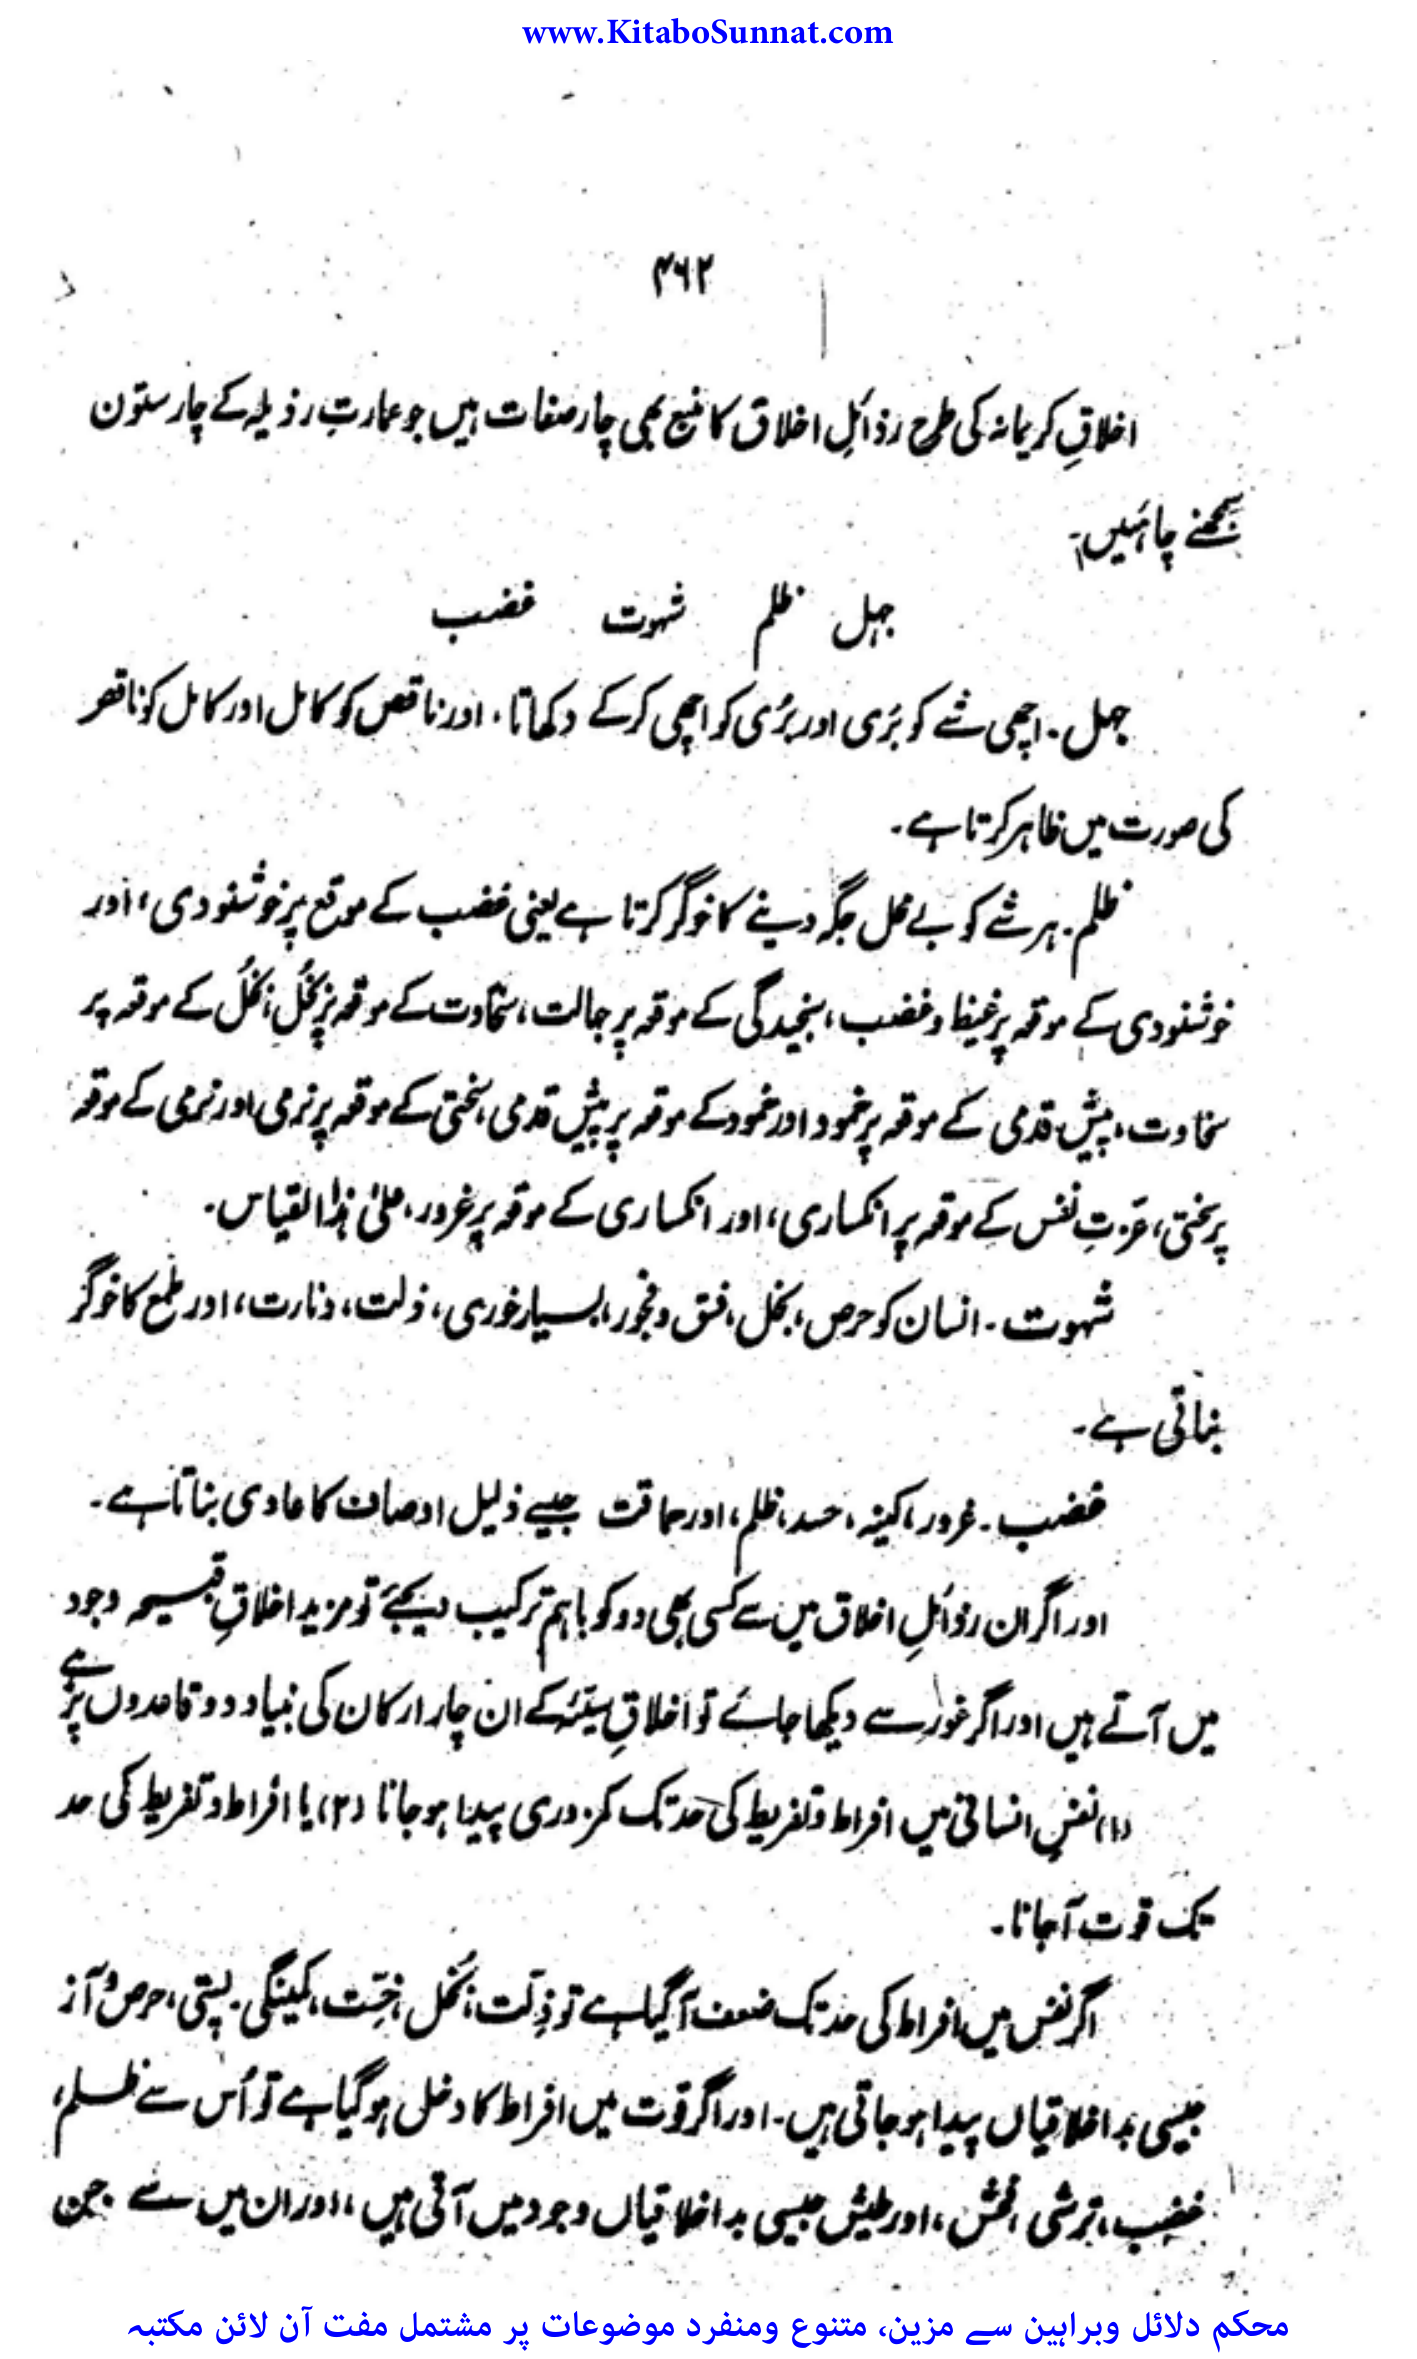 www.KitaboSunnat.com
۴۶۲
اخلاقِ کریمانہ کی طرح رذائلِ اخلاق کا منبع بھی چار صفات ہیں جو عمارتِ رذیلہ کے چار ستون
سمجھنے چاہئیں۔
جہل ظلم شہوت غضب
جہل۔ اچھی شے کو بُری اور بُری کو اچھی کرکے دکھاتا، اور ناقص کو کامل اور کامل کو ناقص
کی صورت میں ظاہر کرتا ہے۔
ظلم۔ ہر شے کو بے محل جگہ دینے کا خوگر کرتا ہے یعنی غضب کے موقع پر خوشنودی، اور
خوشنودی کے موقعہ پر غیظ و غضب، سنجیدگی کے موقعہ پر جہالت، سخاوت کے موقعہ پر بُخل، بُخل کے موقعہ پر
سخاوت، پیش قدمی کے موقعہ پر خمود اور خمود کے موقعہ پر پیش قدمی، سختی کے موقعہ پر نرمی اور نرمی کے موقعہ
پر سختی، عزتِ نفس کے موقعہ پر انکساری، اور انکساری کے موقعہ پر غرور، علیٰ ہٰذا القیاس۔
شہوت۔ انسان کو حرص، بخل، فسق و فجور، بسیار خوری، ذلت، دنارت، اور طمع کا خوگر
بناتی ہے۔
غضب۔ غرور، کینہ، حسد، ظلم، اور حماقت جیسے ذلیل اوصاف کا عادی بناتا ہے۔
اور اگر ان رذائلِ اخلاق میں سے کسی بھی دو کو باہم ترکیب دیجئے تو مزید اخلاقِ قبیحہ وجود
میں آتے ہیں اور اگر غور سے دیکھا جائے تو اخلاقِ سیّئہ کے ان چار ارکان کی بنیاد دو قاعدوں پر ہے
(۱) نفسِ انسانی میں افراط و تفریط کی حد تک کمزوری پیدا ہو جانا (۲) یا افراط و تفریط کی حد
تک قوت آجانا۔
اگر نفس میں افراط کی حد تک ضعف آگیا ہے تو ذِلّت، بُخل، خِسّت، کمینگی، پستی، حرص و آز
جیسی بداخلاقیاں پیدا ہو جاتی ہیں۔ اور اگر قوّت میں افراط کا دخل ہو گیا ہے تو اُس سے ظلم،
غضب، ترشی، فحش، اور طیش جیسی بداخلاقیاں وجود میں آتی ہیں، اور ان میں سے جن
محکم دلائل وبراہین سے مزین، متنوع ومنفرد موضوعات پر مشتمل مفت آن لائن مکتبہ